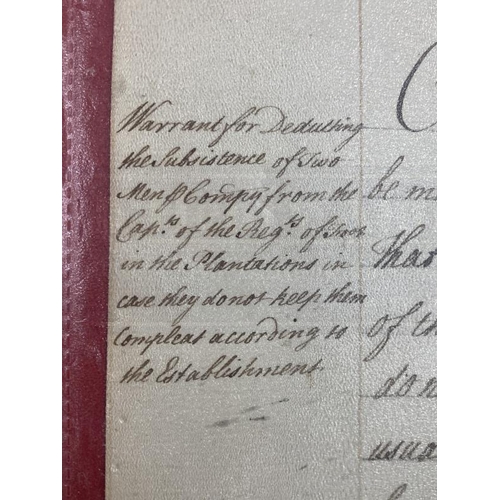 Warrant for Deducting
the Subsistence of Two
Men ⅌ Compy from the
Capts. of the Regts. of Foot
in the Plantations in
case they do not keep them
Compleat according to
the Establishment
be m
that
of th
do n
usua